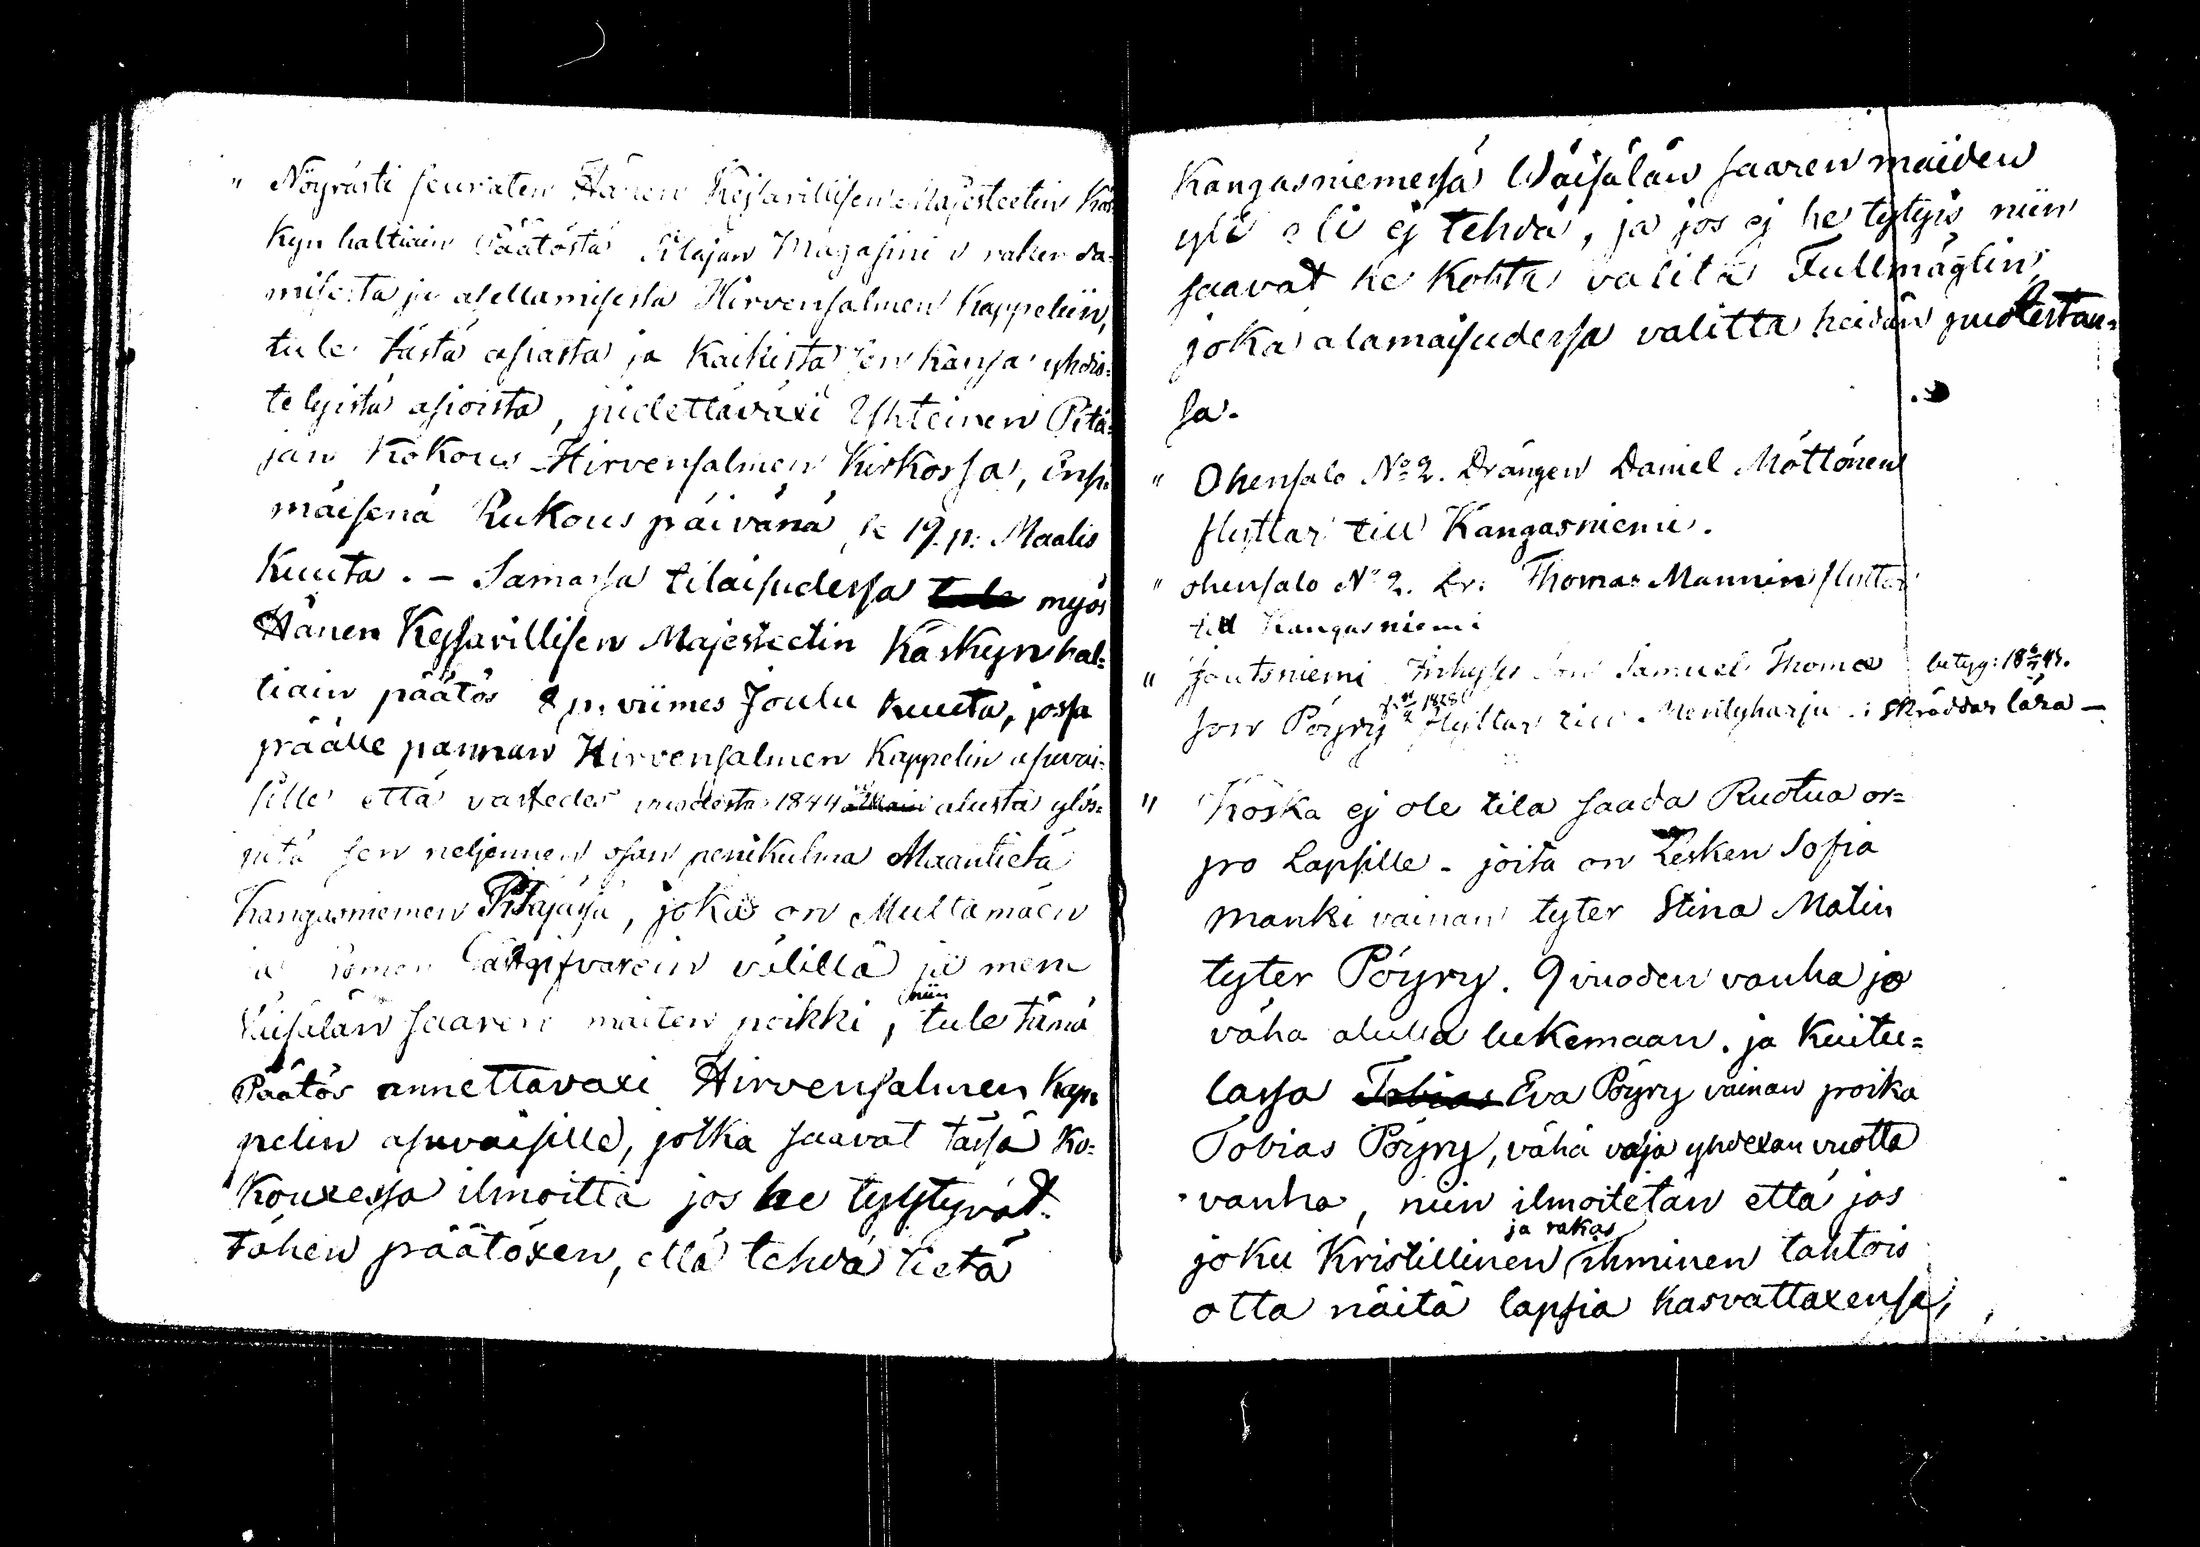 " Nöyrästi seuraten Hänen Kejsarillisen Majesteetin Käs-
kyn haltiain Päätöstä Pitäjän Magasinin rakenda-
misesta ja asellamisesta Hirvensalmen Kappeliin,
tule tästä asiasta ja Kaikista sen kansa yhdis-
telyistä asioista, pidettäväxi Yhteinen Pitä-
jän Kokous Hirvensalmen Kirkossa, Ensi-
mäisenä Rukous päivänä, se 19. p: Maalis
Kuuta. - Samassa tilaisudessa tule myös
Hänen Kejsarillisen Majesteetin Käskyn hal-
tiain päätös 8 p. viimes Joulu kuuta, jossa
päälle pannan Hirvensalmen Kappelin asuvai-
sille että vastedes vuodesta 1844 alusta ylös-
pitä sen neljennen osan penikulma Maantietä
Kangasniemen Pitäjäsä, joka on Multamäen
ja Gästgifvarein välillä ja mene
Väisälän saaren maiten poikki, niin tule tämä
Päätös annettavaxi Hirvensalmen Kap-
pelin asuvaisille, jotka saavat täsä Ko-
kouxessa ilmoitta jos he tytytyvät
tähen päätöxen, ellä tehdä tietä
Kangasniemesä Wäisälän saaren maiden
yli eli ej tehdä, ja jos ej he tytyis niin
saavat he kohta valita Fullmägtin,
joka alamaisudessa valitta heidän puolestan-
sa.
" Ohensalo No 2. Drängen Daniel Möttönen
flyttar till Kangasniemi.
" ohensalo No 2. Dr: Thomas Mannin flyttar
till Kangasniemi
" Joutsniemi Inhyses Son Samuel Thomæ betyg: 18
son Pöyry 1828 flyttar till Mentyharju i skräddar lära -
" Koska ej ole tila saada Ruotua or-
po Lapsille - joita on Lesken Sofia
Manki vainan tyter Stina Matin
tyter Pöyry. 9 vuoden vanha ja
vähä alulla lukemaan. ja Kuitu-
lassa Tobias Eva Pöyry vainan poika
Tobias Pöyry, vähä vaja yhdexan vuotta
vanha, niin ilmoitetan että jos
joku Kristillinen ja rakas ihminen tahtois
otta näitä lapsia kasvattaxensa,